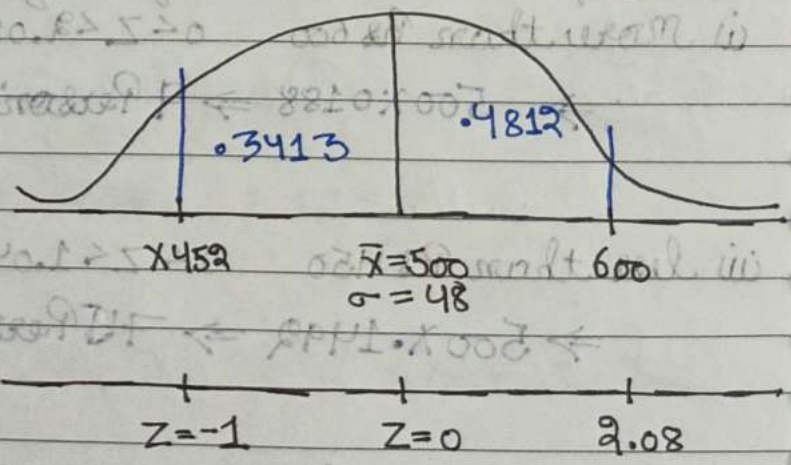 .3413 .4812
X452 x̄=500 600
σ=48
Z=-1 Z=0 2.08